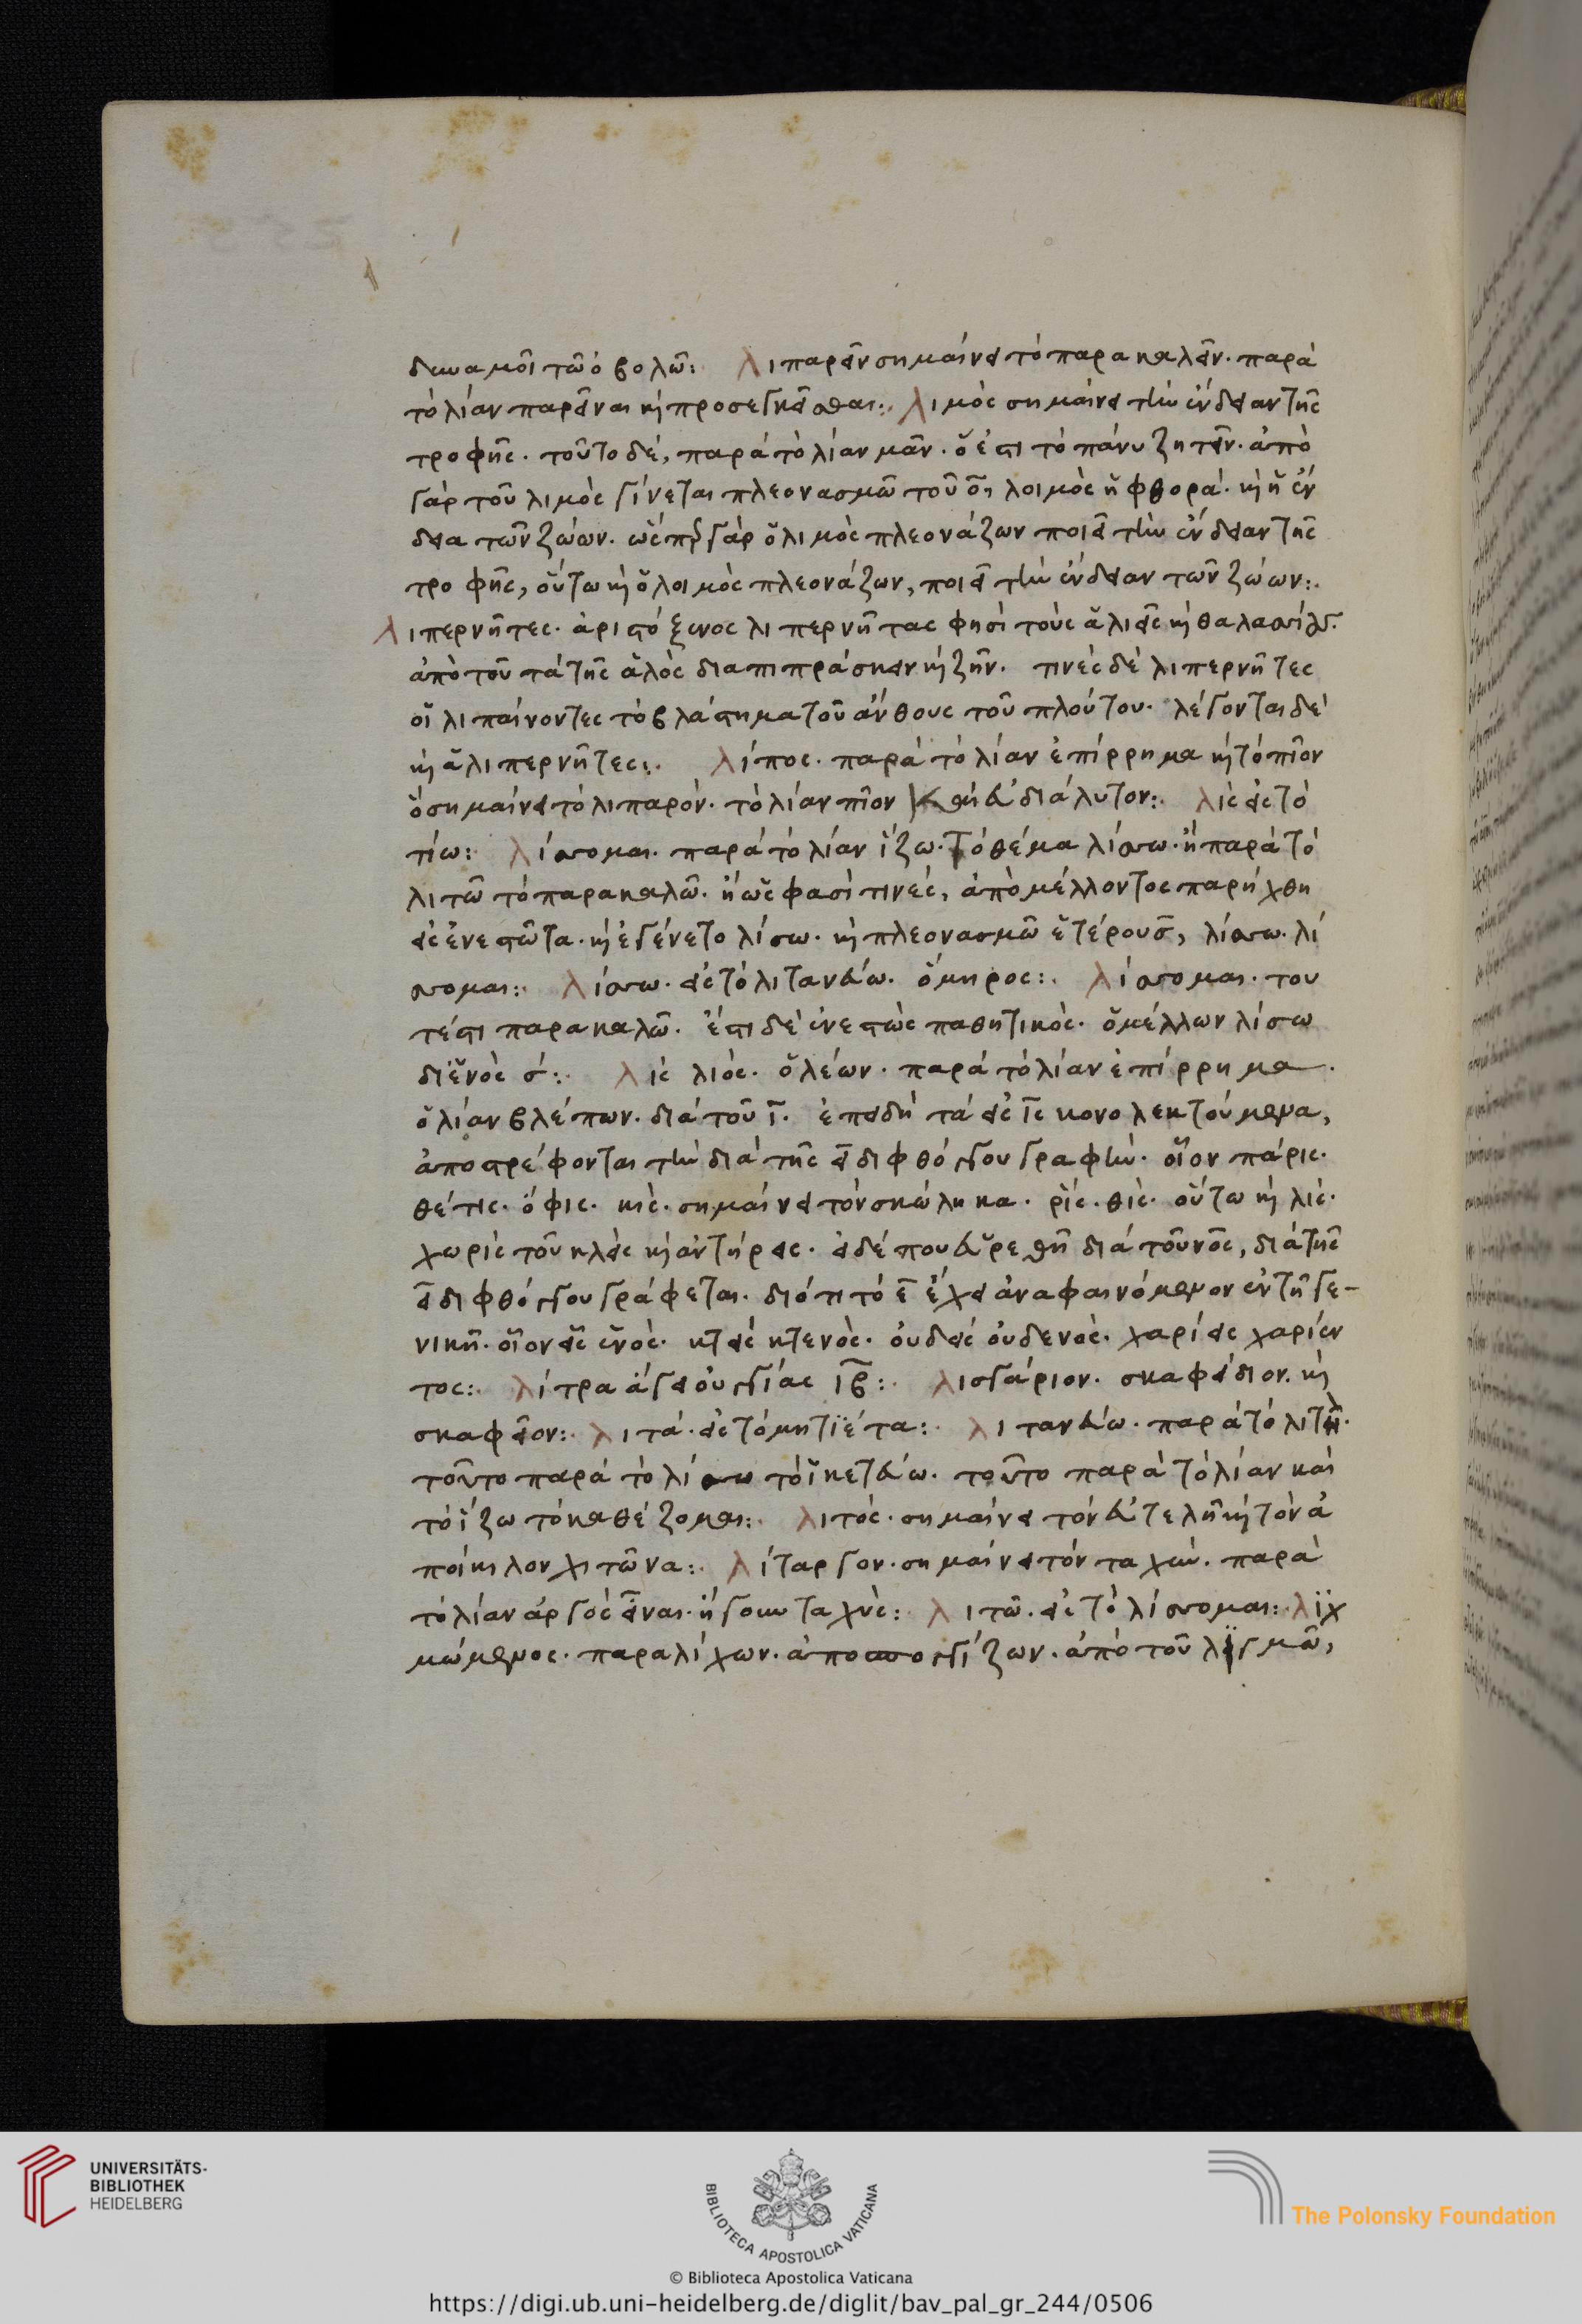 δυναμοῖ τῶ ὀβολῶ: λιπαρεῖν σημαίνει τὸ παρακαλεῖν. παρὰ
τὸ λίαν παρεῖναι καὶ προσεγκεῖσθαι: λιμὸς σημαίνει τὴν ἔνδειαν τῆς
τροφῆς. τοῦτο δὲ, παρὰ τὸ λίαν μᾶν. ὅ ἐστι τὸ πάνυ ζητεῖν. ἀπὸ
γὰρ τοῦ λιμὸς γίνεται πλεονασμῶ τοῦ ο̄, λοιμὸς ἡ φθορά. καὶ ἡ ἔν
δεια τῶν ζώων. ὥσπερ γὰρ ὁ λιμὸς πλεονάζων ποιεῖ τὴν ἔνδειαν τῆς
τροφῆς, οὕτω καὶ ὁ λοιμὸς πλεονάζων, ποιεῖ τὴν ἔνδειαν τῶν ζώων:
λιπερνῆτες. ἀριστόξενος λιπερνῆτας φησὶ τοὺς ἁλιεῖς καὶ
ἀπὸ τοῦ τὰ τῆς ἁλὸς διαπιπράσκειν καὶ ζῆν. τινὲς δὲ λιπερνῆτες
οἱ λιπαίνοντες τὸ βλάστημα τοῦ ἄνθους τοῦ πλούτου. λέγονται δὲ
καὶ ἁλιπερνῆτες: λίπος. παρὰ τὸ λίαν ἐπίρρημα καὶ τὸ πῖον
ὃ σημαίνει τὸ λιπαρόν. τὸ λίαν πῖον καὶ εὐδιάλυτον: λὶς εἰς τὸ
τίω: λίσσομαι. παρὰ τὸ λίαν ἵζω. τὸ θέμα λίσσω. ἢ παρὰ τὸ
λιτῶ τὸ παρακαλῶ. ἢ ὥς φασί τινες, ἀπὸ μέλλοντος παρήχθη
εἰς ἐνεστῶτα. καὶ ἐγένετο λίσω. καὶ πλεονασμῶ ἑτέρου σ̄, λίσσω. λί
σσομαι: λίσσω. εἰς τὸ λιτανεύω. ὅμηρος: λίσσομαι. του
τέστι παρακαλῶ. ἔστι δὲ ἐνεστὼς παθητικός. ὁ μέλλων λίσω
δι' ἑνὸς σ: λὶς λιός. ὁ λέων. παρὰ τὸ λίαν ἐπίρρημα.
ὁ λίαν βλέπων. διὰ τοῦ ῑ. ἐπειδὴ τὰ εἰς ῑς μονολεκτούμενα,
ἀποστρέφονται τὴν διὰ τῆς ε̄ῑ διφθόγγου γραφήν. οἷον πάρις.
θέτις. ὄφις. κίς. σημαίνει τὸν σκώληκα. ῥίς. θίς. οὕτω καὶ λίς.
χωρὶς τοῦ κλεὶς καὶ ἀντήρεις. εἰ δέ που εὑρεθῆ διὰ τοῦ νος, διὰ τῆς
ε̄ῑ διφθόγγου γράφεται. διότι τὸ ε̄ ἔχει ἀναφαινόμενον ἐν τῆ γε-
νικῆ. οἷον εἷς ἑνός. κτεὶς κτενός. οὐδεὶς οὐδενός. χαρίεις χαρίεν
τος: λίτρα ἄγει οὐγγίας ιβ̄: λισγάριον. σκαφείδιον. καὶ
σκαφεῖον: λιτά. εἰς τὸ μητιέτα: λιτανεύω. παρὰ τὸ λιτή.
τοῦτο παρὰ τὸ λίσσω τὸ ἱκετεύω. τοῦτο παρὰ τὸ λίαν καὶ
τὸ ἵζω τὸ καθέζομαι: λιτός. σημαίνει τὸν εὐτελῆ καὶ τὸν ἀ
ποίκιλον χιτῶνα: λίταργον. σημαίνει τὸν ταχύν. παρὰ
τὸ λίαν ἀργὸς εἶναι. ἤγουν ταχύς: λιτῶ. εἰς τὸ λίσσομαι: λιχ
μώμενος. παραλίχων. ἀποσπογγίζων. ἀπὸ τοῦ λιγμῶ,
UNIVERSITÄTS-
BIBLIOTHEK
HEIDELBERG
BIBLIOTECA APOSTOLICA VATICANA
The Polonsky Foundation
© Biblioteca Apostolica Vaticana
https://digi.ub.uni-heidelberg.de/diglit/bav_pal_gr_244/0506